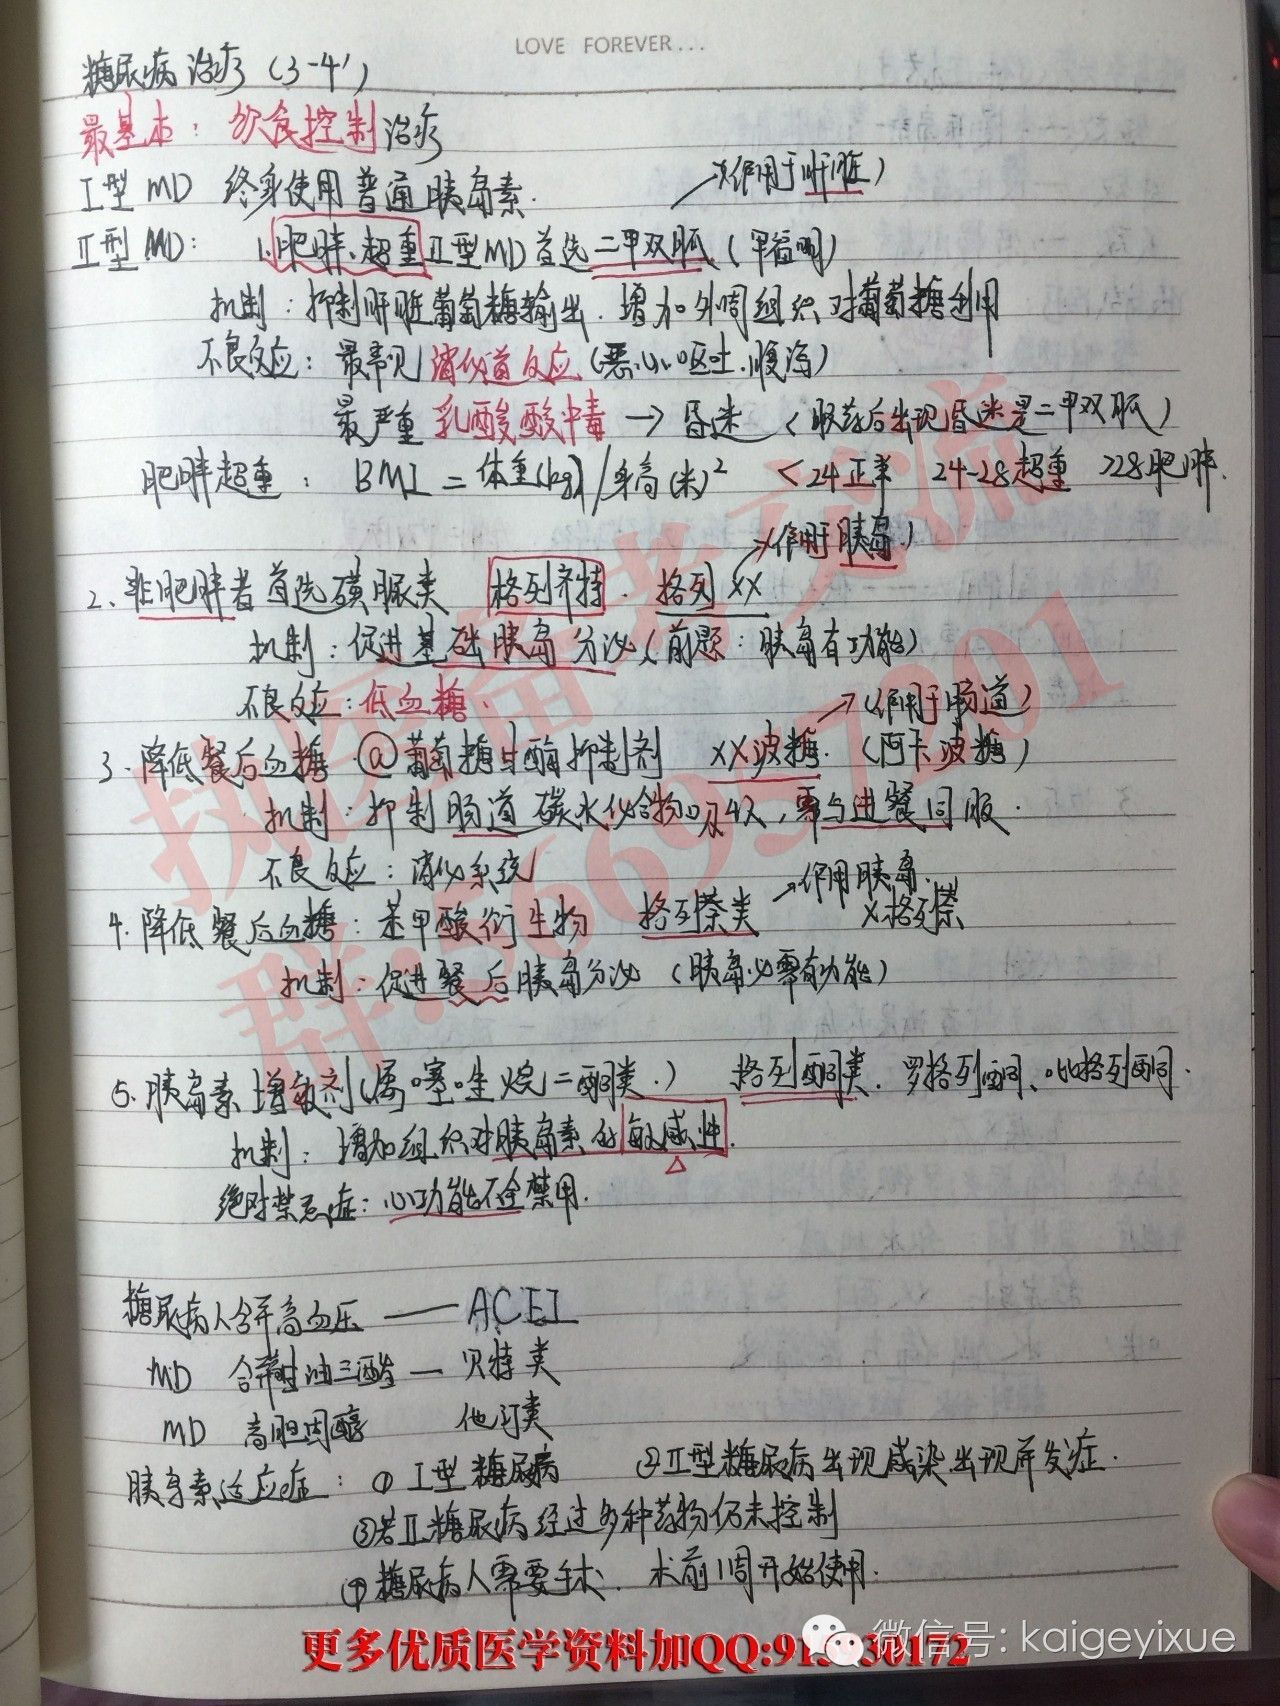 LOVE FOREVER...
糖尿病治疗(3-4')
最基本：饮食控制治疗
I型 MD 终身使用普通胰岛素.
↗(作用于肝脏)
II型 MD: 1.肥胖、超重II型MD首选二甲双胍(甲福明)
机制：抑制肝脏葡萄糖输出.增加外周组织对葡萄糖利用
不良反应：最常见 消化道反应(恶心.呕吐.腹泻)
最严重 乳酸酸中毒 → 昏迷(服药后出现昏迷是二甲双胍)
肥胖超重： BMI = 体重(kg)/身高(米)² <24正常 24-28超重 >28肥胖.
↗(作用于胰岛)
2、非肥胖者首选磺脲类 格列齐特. 格列XX
机制：促进基础胰岛分泌(前题：胰岛有功能)
不良反应：低血糖.
↗(作用于肠道)
3.降低餐后血糖.@葡萄糖苷酶抑制剂 XX波糖.(阿卡波糖)
机制：抑制肠道碳水化合物吸收,需与进餐同服.
不良反应：消化系统
↗作用胰岛.
4.降低餐后血糖：苯甲酸衍生物 格列奈类 X格列奈
机制：促进餐后胰岛分泌(胰岛必需有功能)
5.胰岛素增敏剂(属噻唑烷二酮类.) 格列酮类.罗格列酮、吡格列酮.
机制：增加组织对胰岛素的敏感性.
△
绝对禁忌症：心功能不全禁用.
糖尿病人合并高血压 —— ACEI
MD 合并甘油三酯 — 贝特类
MD 高胆固醇 他汀类
胰岛素适应症：① I型糖尿病 ②II型糖尿病出现感染出现并发症.
③若II糖尿病经过多种药物仍未控制
④糖尿病人需要手术.术前1周开始使用.
执医备考交流
更多优质医学资料加QQ:915030172
微信号: kaigeyixue